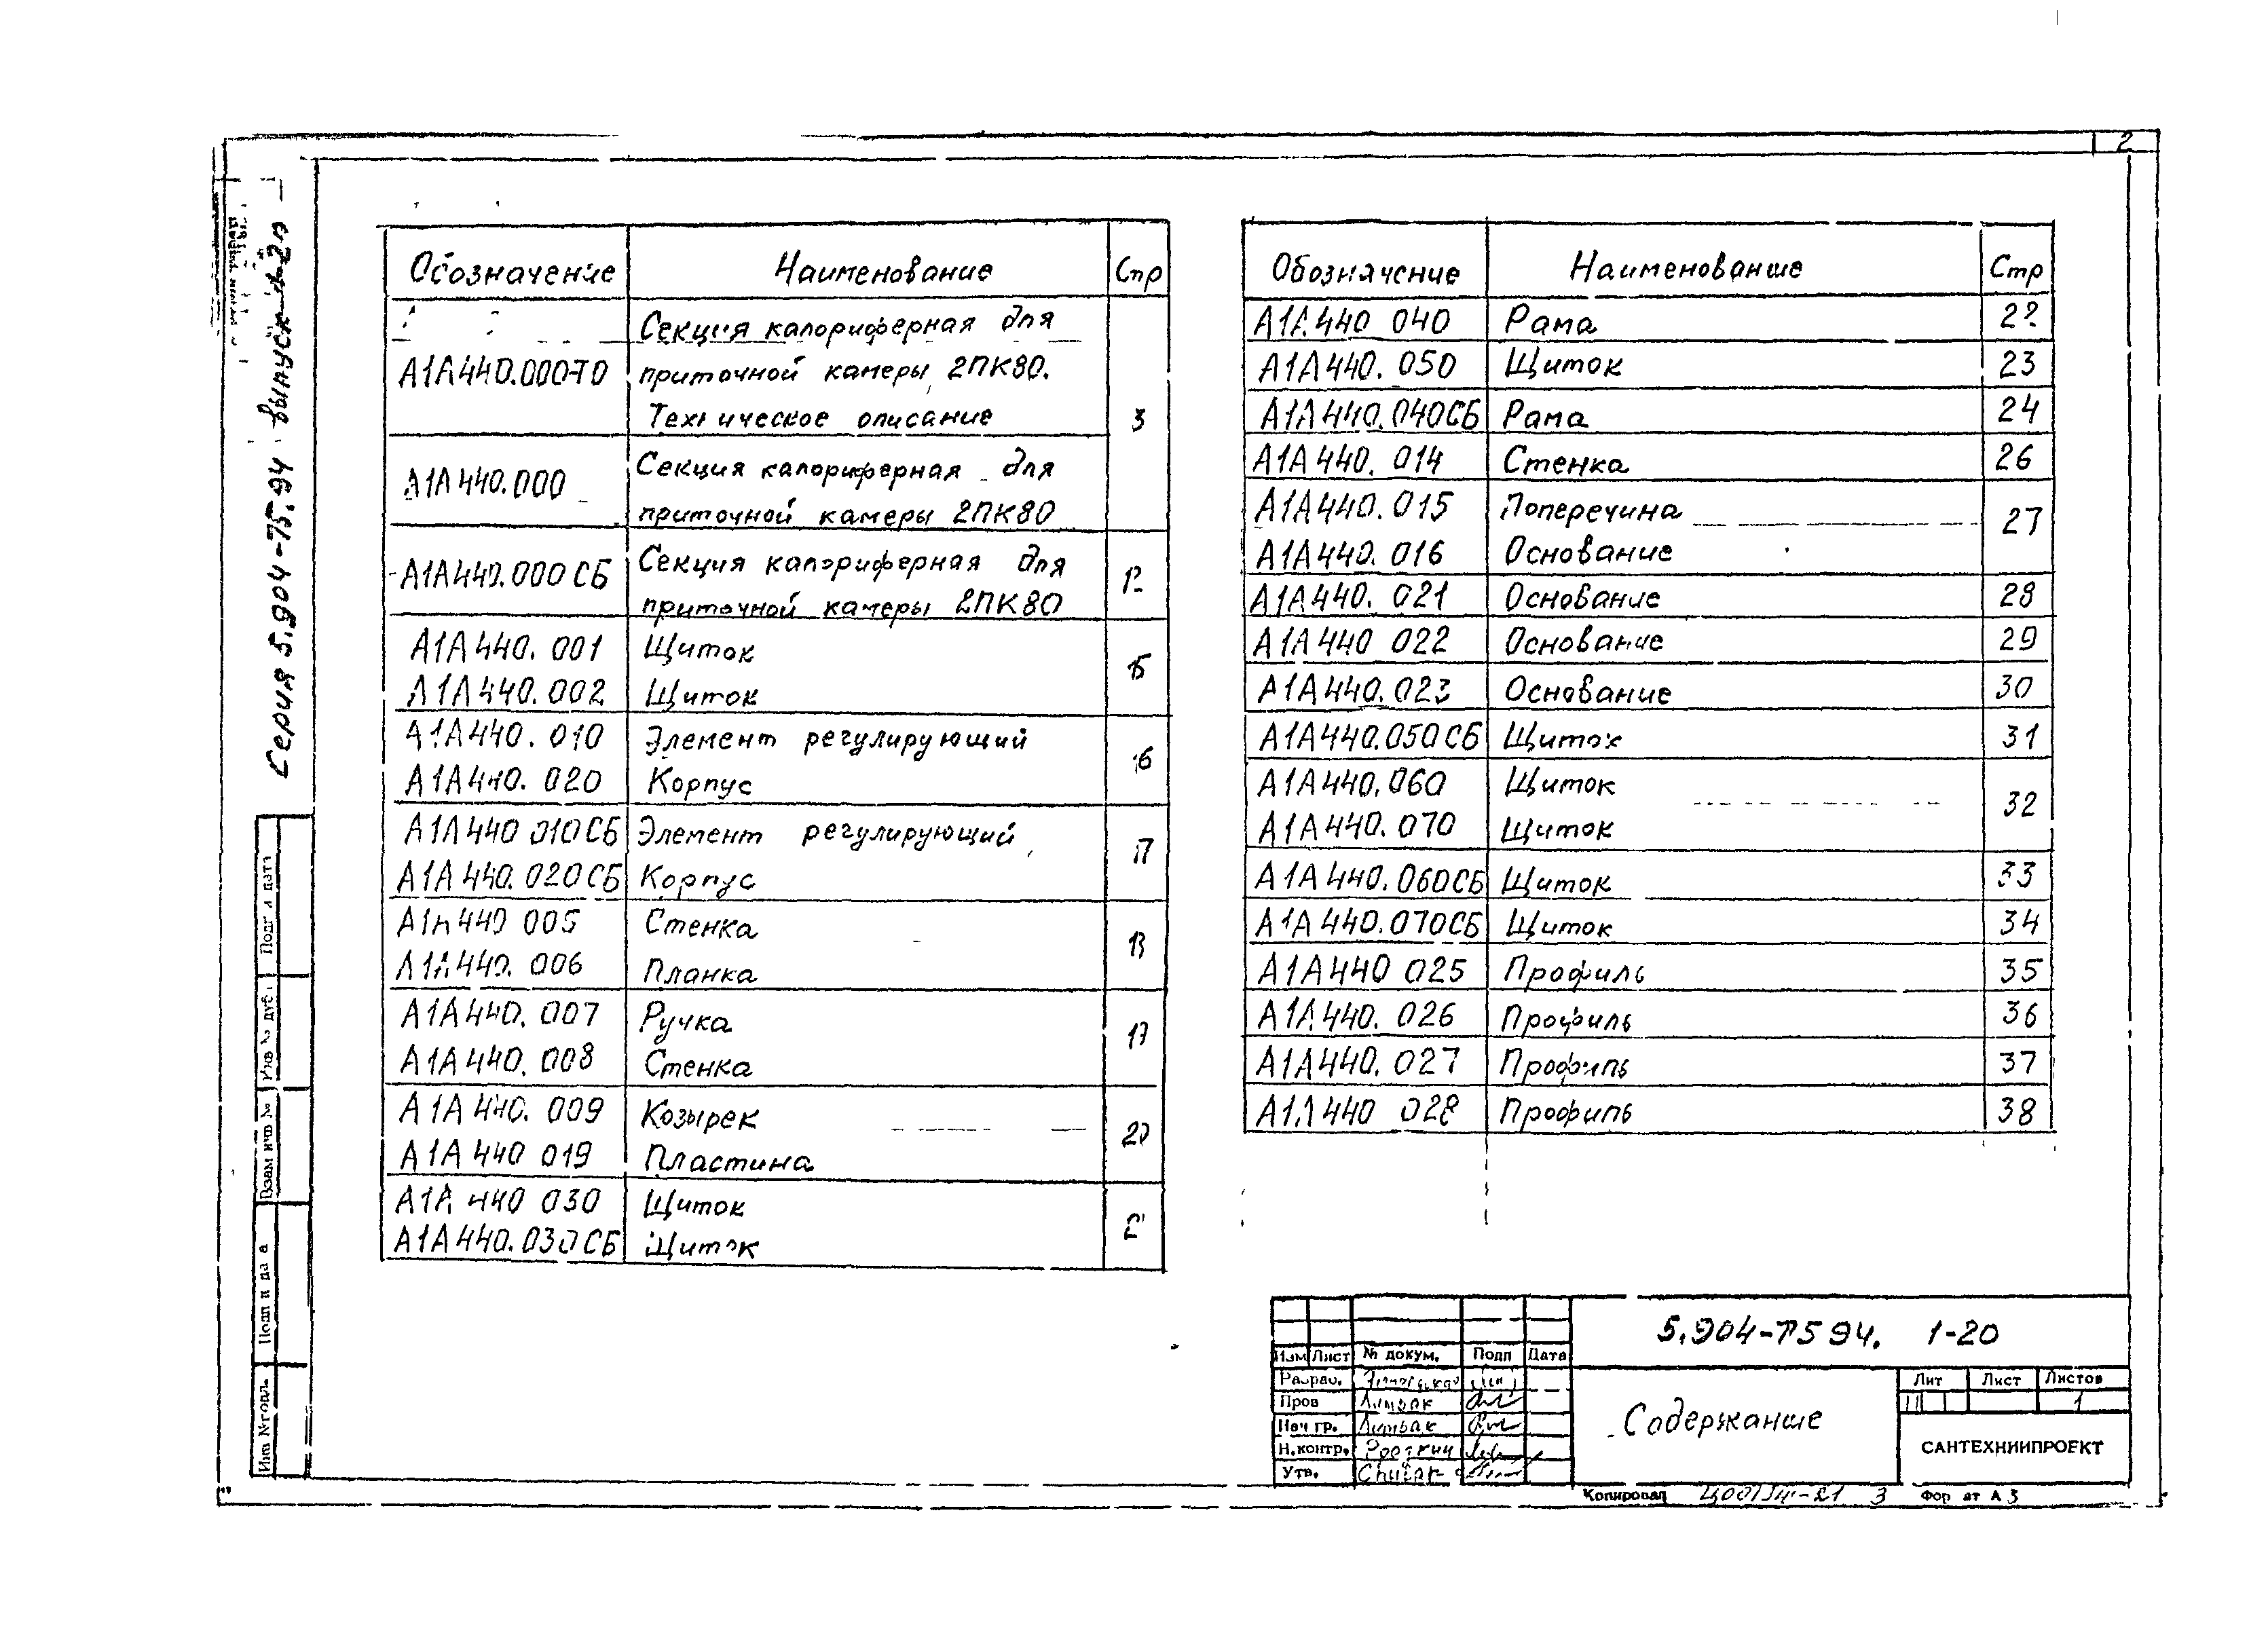 2
Серия 5.904-75.94 выпуск 1-20
Обозначение Наименование Стр
А1А440.000ТО Секция калориферная для
приточной камеры 2ПК80.
Техническое описание 3
А1А440.000 Секция калориферная для
приточной камеры 2ПК80
А1А440.000 СБ Секция калориферная для
приточной камеры 2ПК80
А1А440.001 Щиток
А1А440.002 Щиток 15
А1А440.010 Элемент регулирующий
А1А440.020 Корпус 16
А1А440 010СБ Элемент регулирующий
А1А440.020СБ Корпус 17
А1А440 005 Стенка
А1А440.006 Планка
А1А440.007 Ручка
А1А440.008 Стенка
А1А440.009 Козырек
А1А440 019 Пластина 20
А1А 440 030 Щиток
А1А440.030СБ Щиток
Обозначение Наименование Стр
А1А440 040 Рама 22
А1А440.050 Щиток 23
А1А440.040СБ Рама 24
А1А440.014 Стенка 26
А1А440.015 Поперечина 27
А1А440.016 Основание
А1А440.021 Основание 28
А1А440 022 Основание 29
А1А440.023 Основание 30
А1А440.050СБ Щиток 31
А1А440.060 Щиток 32
А1А440.070 Щиток
А1А440.060СБ Щиток 33
А1А440.070СБ Щиток 34
А1А440 025 Профиль 35
А1А440.026 Профиль 36
А1А440.027 Профиль 37
А1А440 028 Профиль 38
Подп и дата
Инв № дубл
Взам инв №
Подп и дата
Инв № подл.
5.904-75 94. 1-20
Изм Лист № докум. Подп Дата
Разраб.
Пров Литвак
Нач гр. Литвак
Н.контр.
Утв.
Содержание
Лит Лист Листов
1
САНТЕХНИИПРОЕКТ
Копировал 3 Формат А3